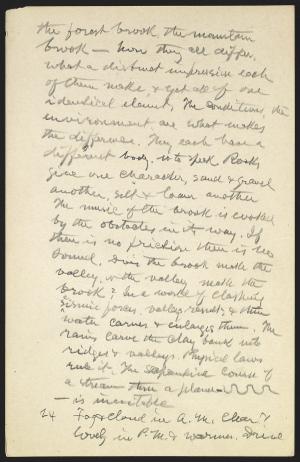 the forest brook, the mountain
brook — how they all differ,
what a distinct impression each
of them make, & yet all of one
identical element, The conditions, the
environment are what makes
the difference. They each have a
different body, so to speak Rocks
give one character, sand & gravel
another, silt & loam another
The music of the brook is evoked
by the obstacles in its way. If
there is no friction there is no
sound, Does the brook make the
valley, or the valley make the
brook? In a world of clashing
seismic forces, valleys result, & then
water carves & enlarges them. The
rains carve the clay bank into
ridges & valleys. Physical laws
rule it. The serpentine course of
a stream thru a plane
— is inevitable
24 Fog & cloud in A.M. Clear &
lovely in P.M. & warmer. Drive